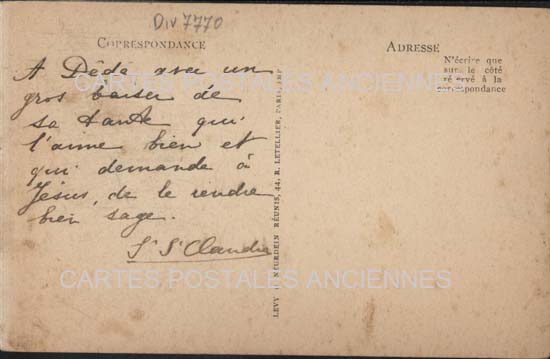 Div 7770
CORRESPONDANCE
A Dédé avec un
gros baiser de
sa tante qui
l'aime bien et
qui demande à
Jésus, de le rendre
bien sage.
Sr St Claudia
ADRESSE
N'écrire que
sur le côté
réservé à la
correspondance
LEVY & NEURDEIN RÉUNIS, 44, R. LETELLIER, PARIS-IMP.
CARTES POSTALES ANCIENNES
CARTES POSTALES ANCIENNES